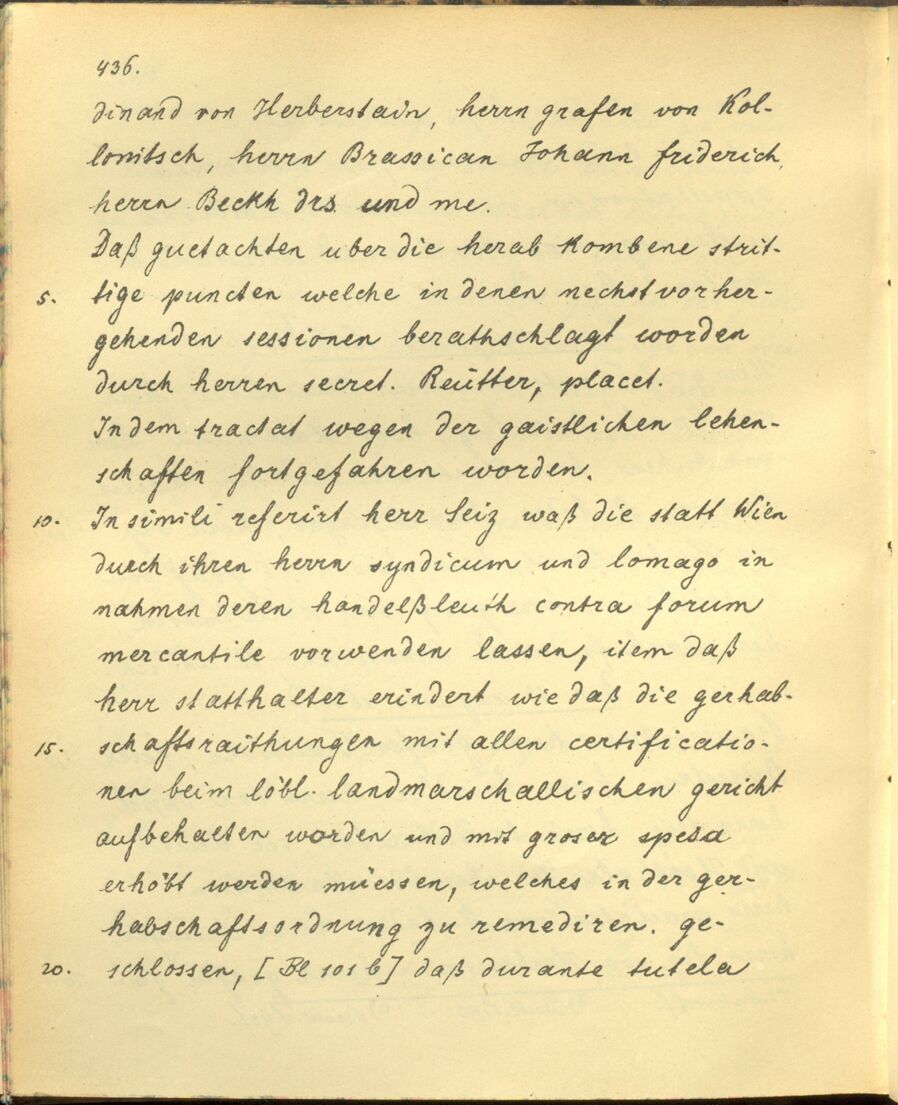 436.
dinand von Herberstain, herrn grafen von Kol-
lonitsch, herrn Brassican Johann friderich,
herrn Beckh drs. und me.
Daß guetachten uber die herab Kombene strit-
5. tige puncten welche in denen nechst vorher-
gehenden sessionen berathschlagt worden
durch herren secret. Reütter, placet.
In dem tractat wegen der gaistlichen lehen-
schaften fortgefahren worden.
10. In simili referirt herr Seiz waß die statt Wien
durch ihren herrn syndicum und lomago in
nahmen deren handelßleuth contra forum
mercantile vorwenden lassen, item daß
herr statthalter erindert wie daß die gerhab-
15. schaftsraithungen mit allen certificatio-
nen beim löbl. landmarschallischen gericht
aufbehalten worden und mit groser spesa
erhöbt werden müessen, welches in der ger-
habschaftsordnung zu remediren. ge-
20. schlossen, [Bl 101 b] daß durante tutela